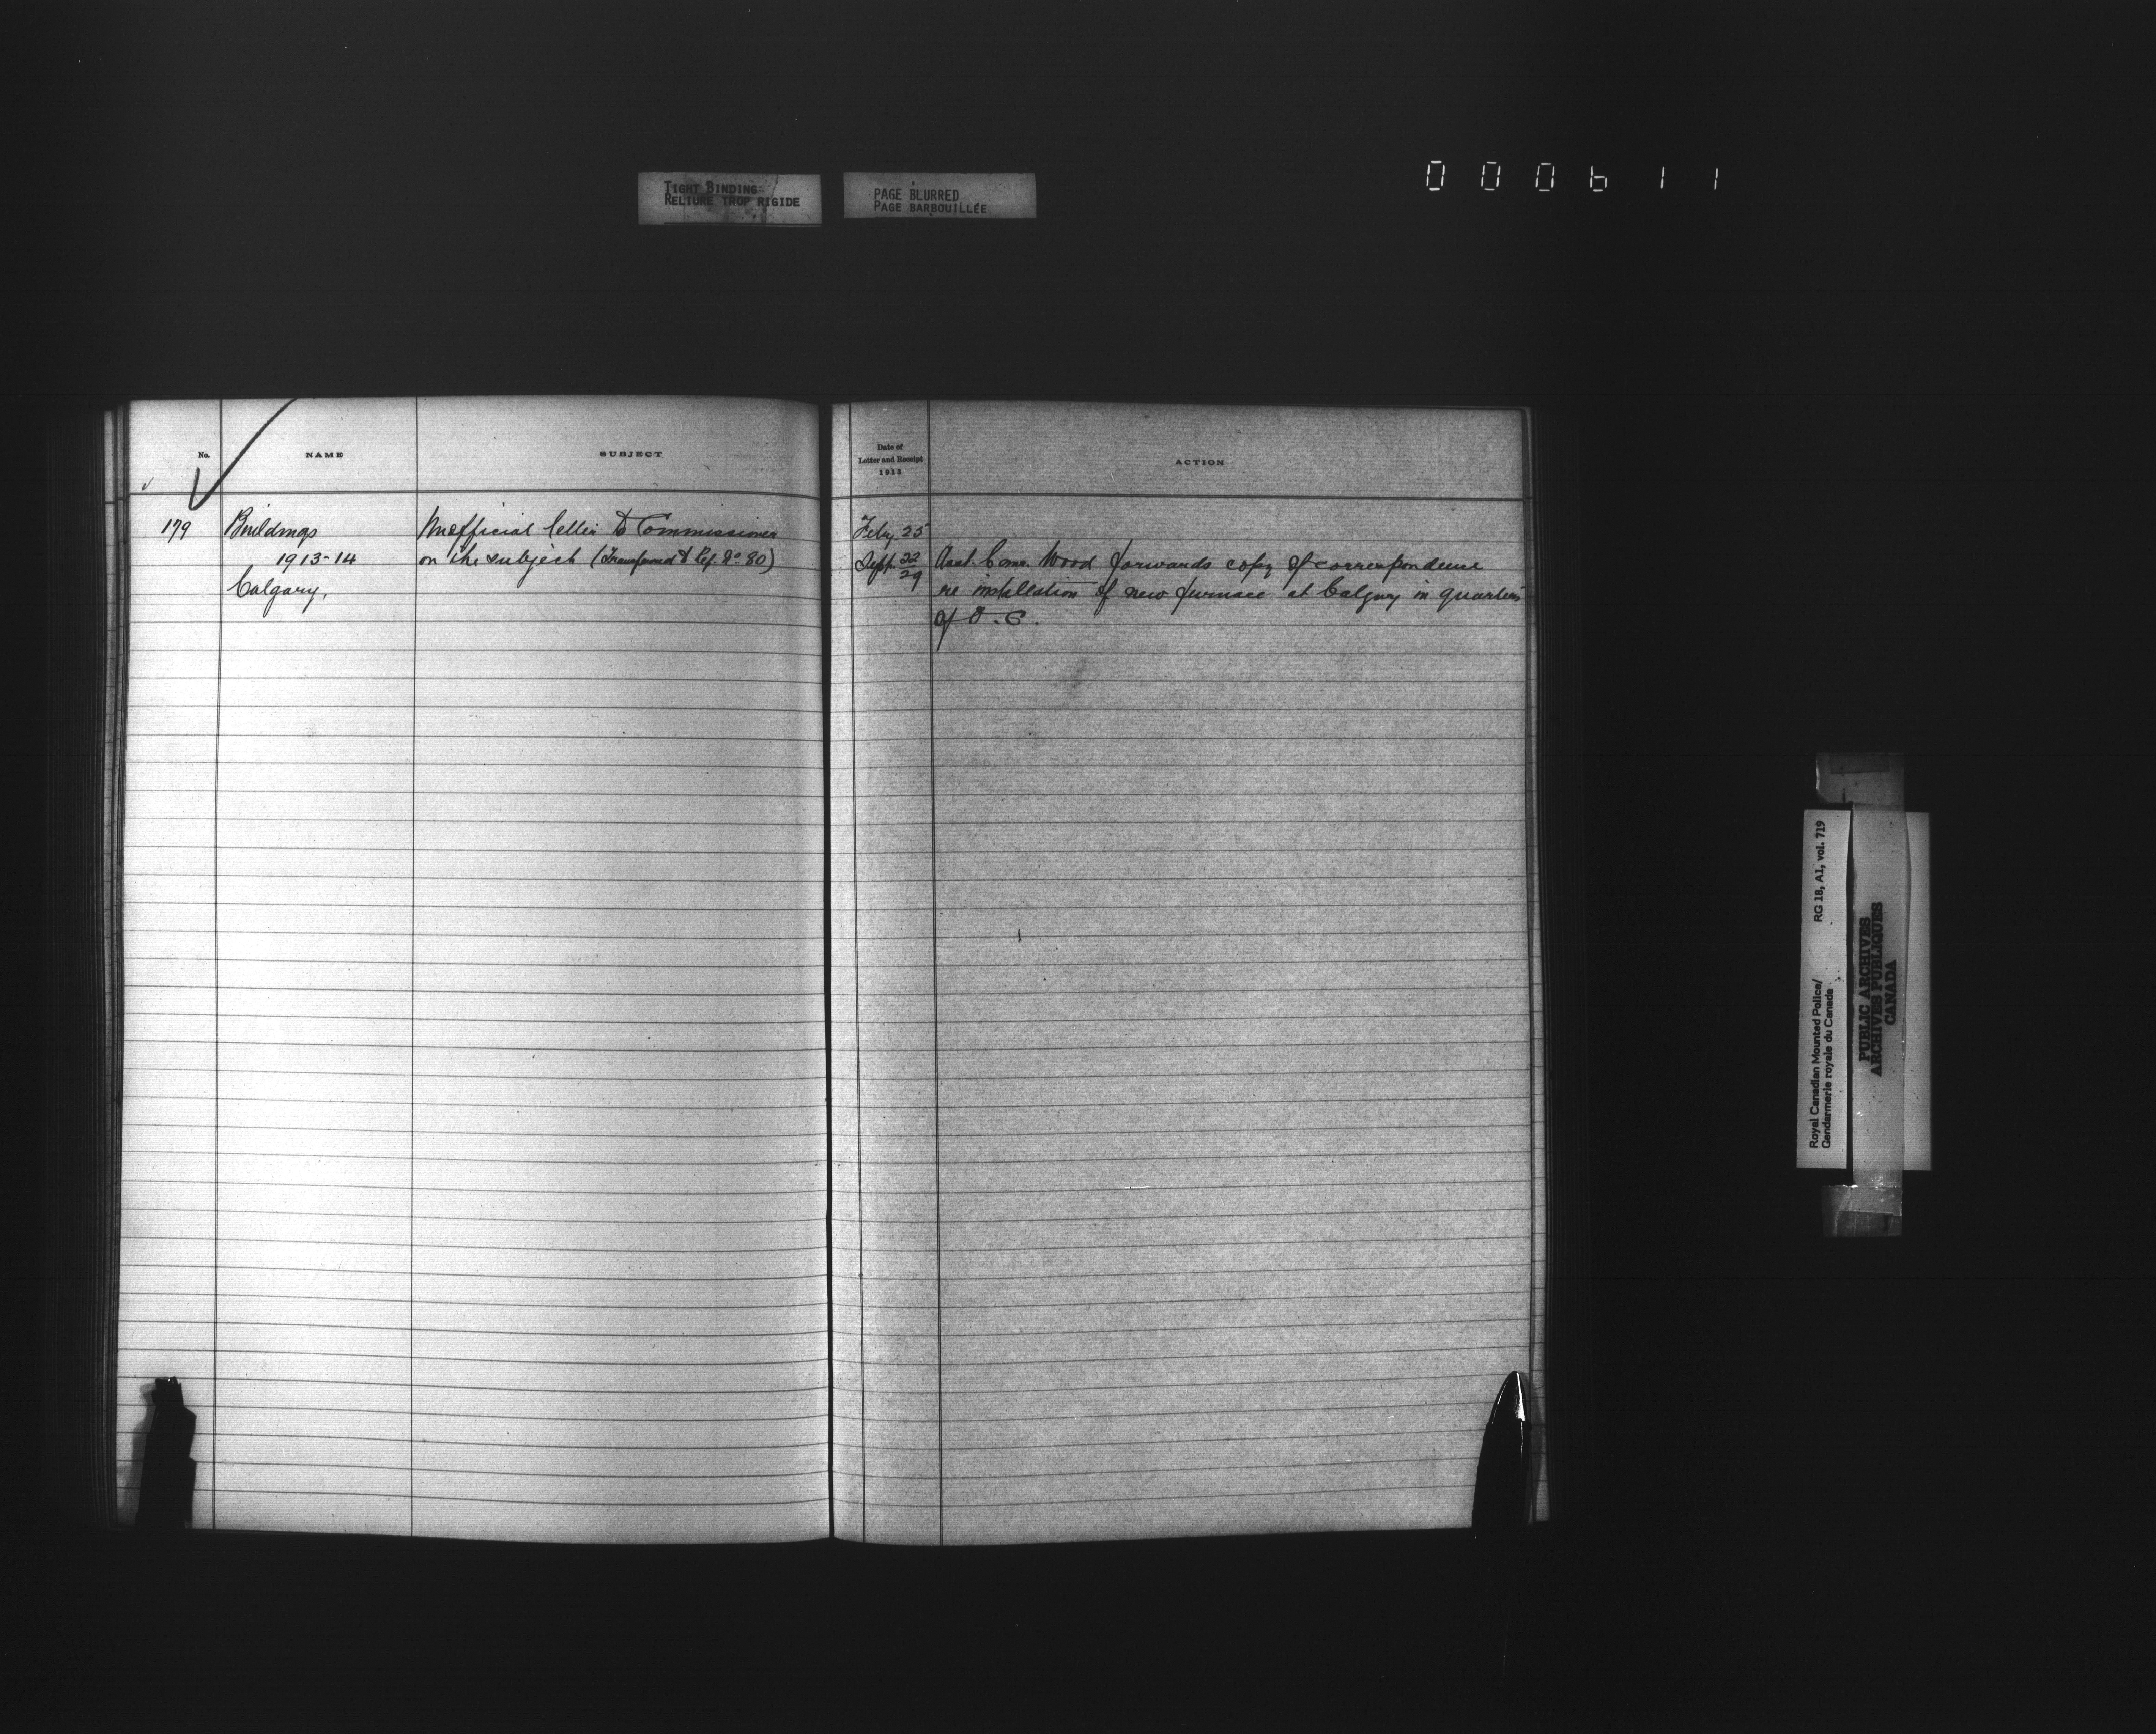 TIGHT BINDING
RELIURE TROP RIGIDE
PAGE BLURRED
PAGE BARBOUILLÉE
000611
No.
NAME
SUBJECT
179
Buildings
1913-14
Calgary,
Unofficial letter to Commissioner
on the subject (Transferred to Ref. No 80)
Date of
Letter and Receipt
1913
ACTION
Feby. 25
Sept. 22/29
Asst. Comr. Wood forwards copy of correspondence
re installation of new furnace at Calgary in quarters
of O.C.
Royal Canadian Mounted Police/
Gendarmerie royale du Canada
RG 18, A1, vol. 719
PUBLIC ARCHIVES
ARCHIVES PUBLIQUES
CANADA